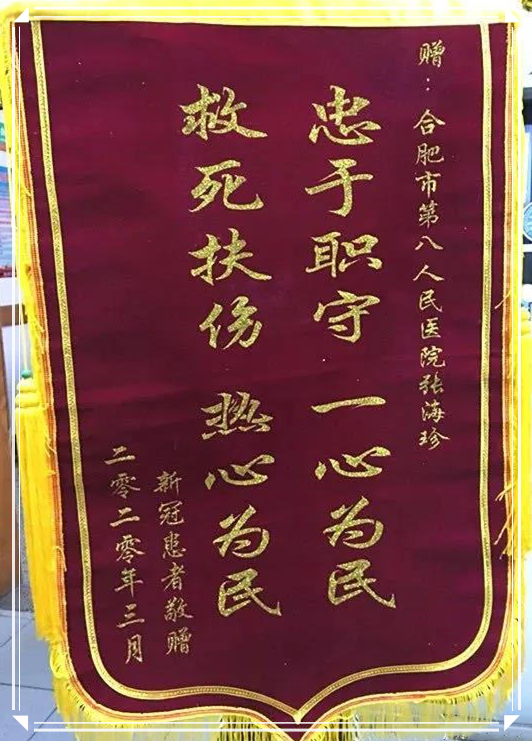 赠：合肥市第八人民医院张海珍
忠于职守 一心为民
救死扶伤 热心为民
新冠患者敬赠
二零二零年三月